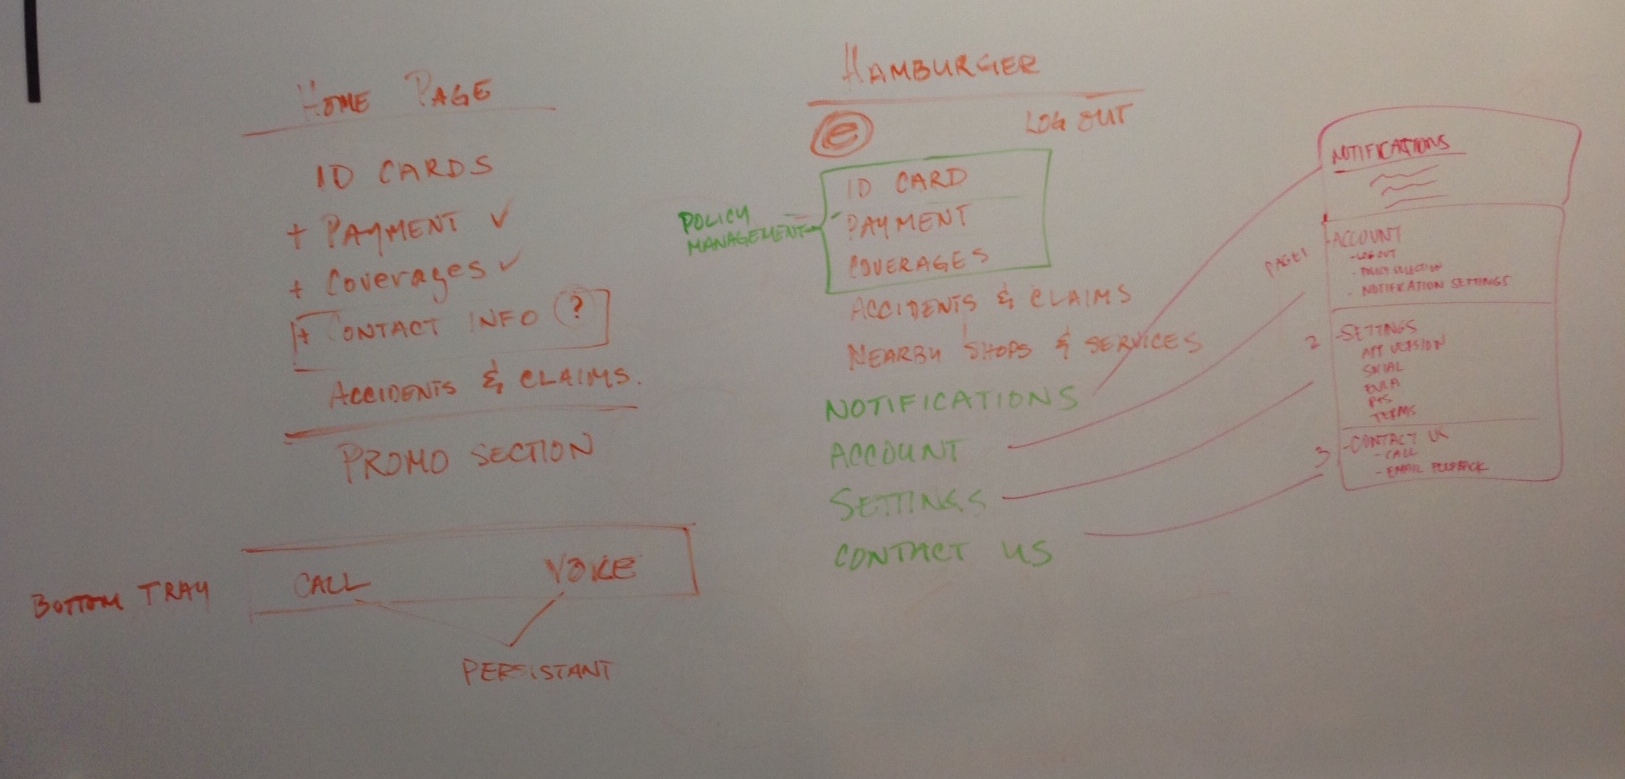 HOME PAGE
ID CARDS
+ PAYMENT ✓
+ Coverages ✓
+ CONTACT INFO (?)
ACCIDENTS & CLAIMS.
PROMO SECTION
BOTTOM TRAY
CALL VOICE
PERSISTANT
HAMBURGER
e LOG OUT
POLICY
MANAGEMENT
ID CARD
PAYMENT
COVERAGES
ACCIDENTS & CLAIMS
NEARBY SHOPS & SERVICES
NOTIFICATIONS
ACCOUNT
SETTINGS
CONTACT US
NOTIFICATIONS
PAGE 1
- ACCOUNT
- LOG OUT
- POLICY SELECTION
- NOTIFICATION SETTINGS
2 - SETTINGS
APP VERSION
SOCIAL
EULA
TERMS
3 - CONTACT US
- CALL
- EMAIL FEEDBACK